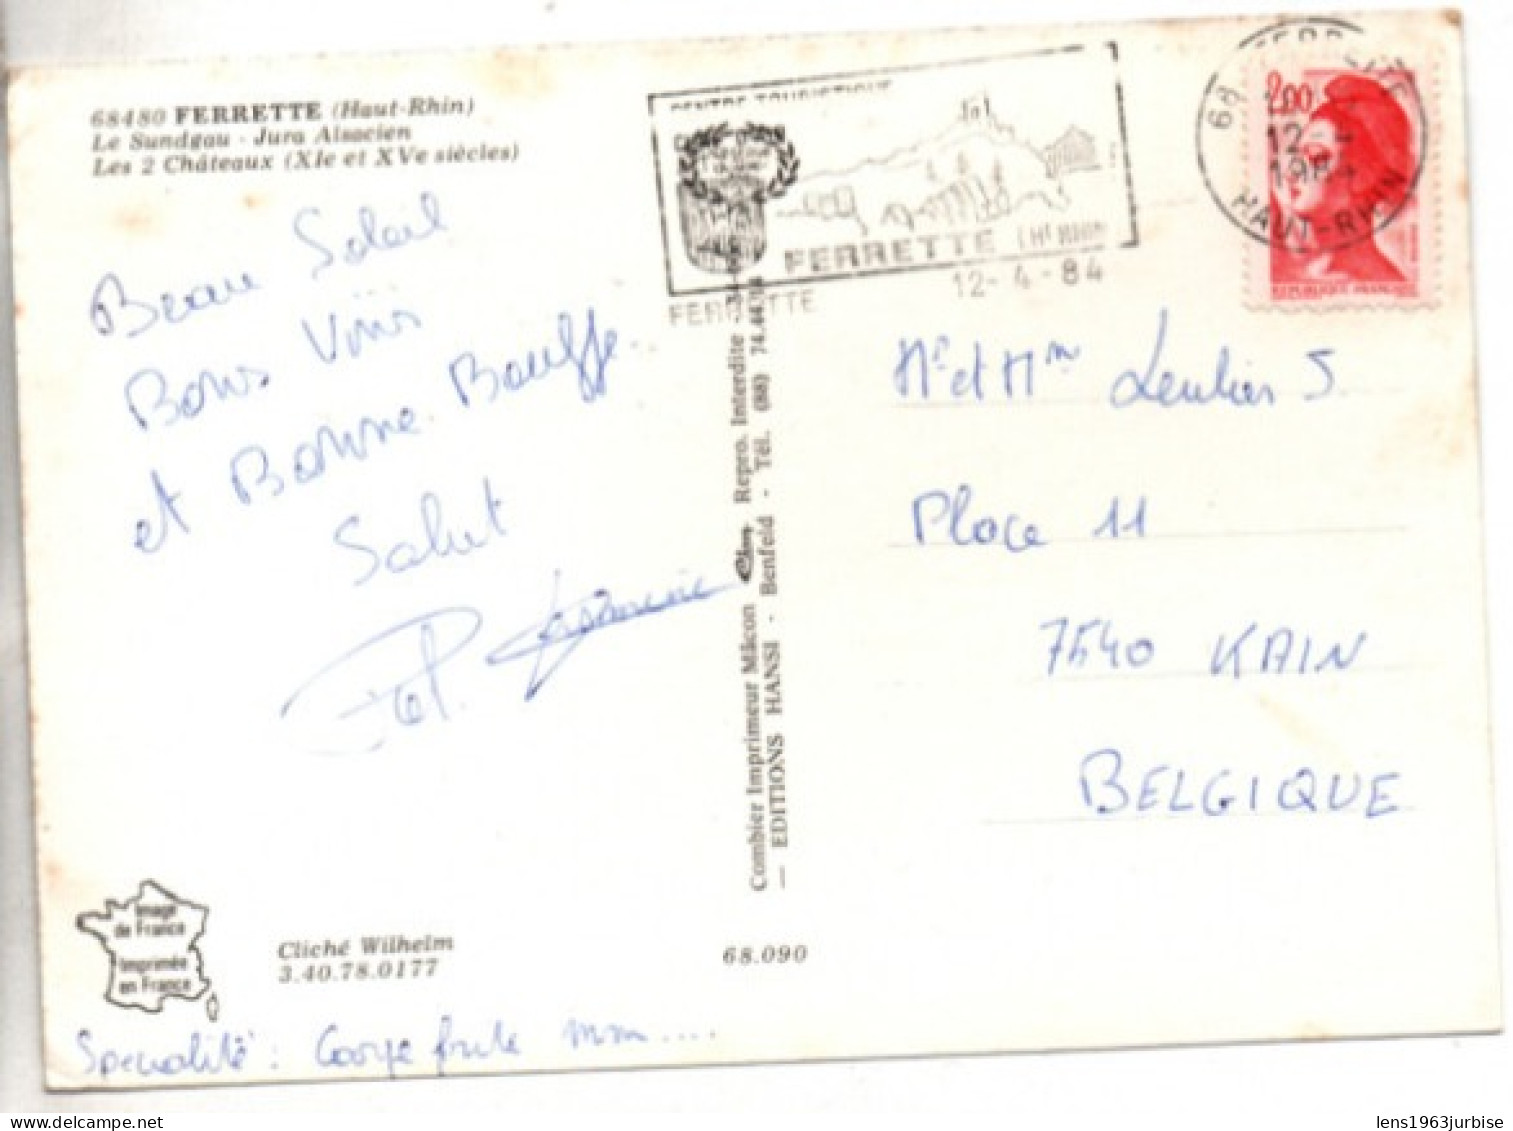 68480 FERRETTE (Haut-Rhin)
Le Sundgau - Jura Alsacien
Les 2 Châteaux (XIe et XVe siècles)
Beau Soleil
Bons Vins
et Bonne Bouffe.
Salut
CENTRE TOURISTIQUE
FERRETTE (Ht RHIN)
FERRETTE
12-4-84
68
12-4
1984
HAUT-RHIN
2,00
REPUBLIQUE FRANÇAISE
Mr et Mme S
Place 11
7540 KAIN
BELGIQUE
Combier Imprimeur Mâcon Cim Repro. Interdite
— EDITIONS HANSI - Benfeld - Tél. (88) 74.44.
Image
de France
Imprimée
en France
Cliché Wilhelm
3.40.78.0177
68.090
Spécialité : Carpe frite mmm....
lens1963jurbise